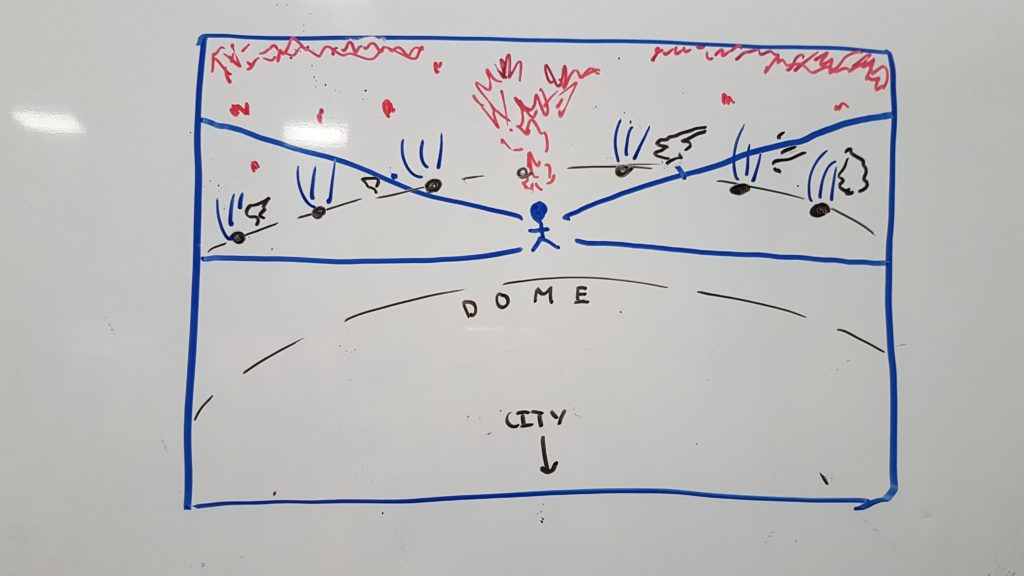 DOME
CITY